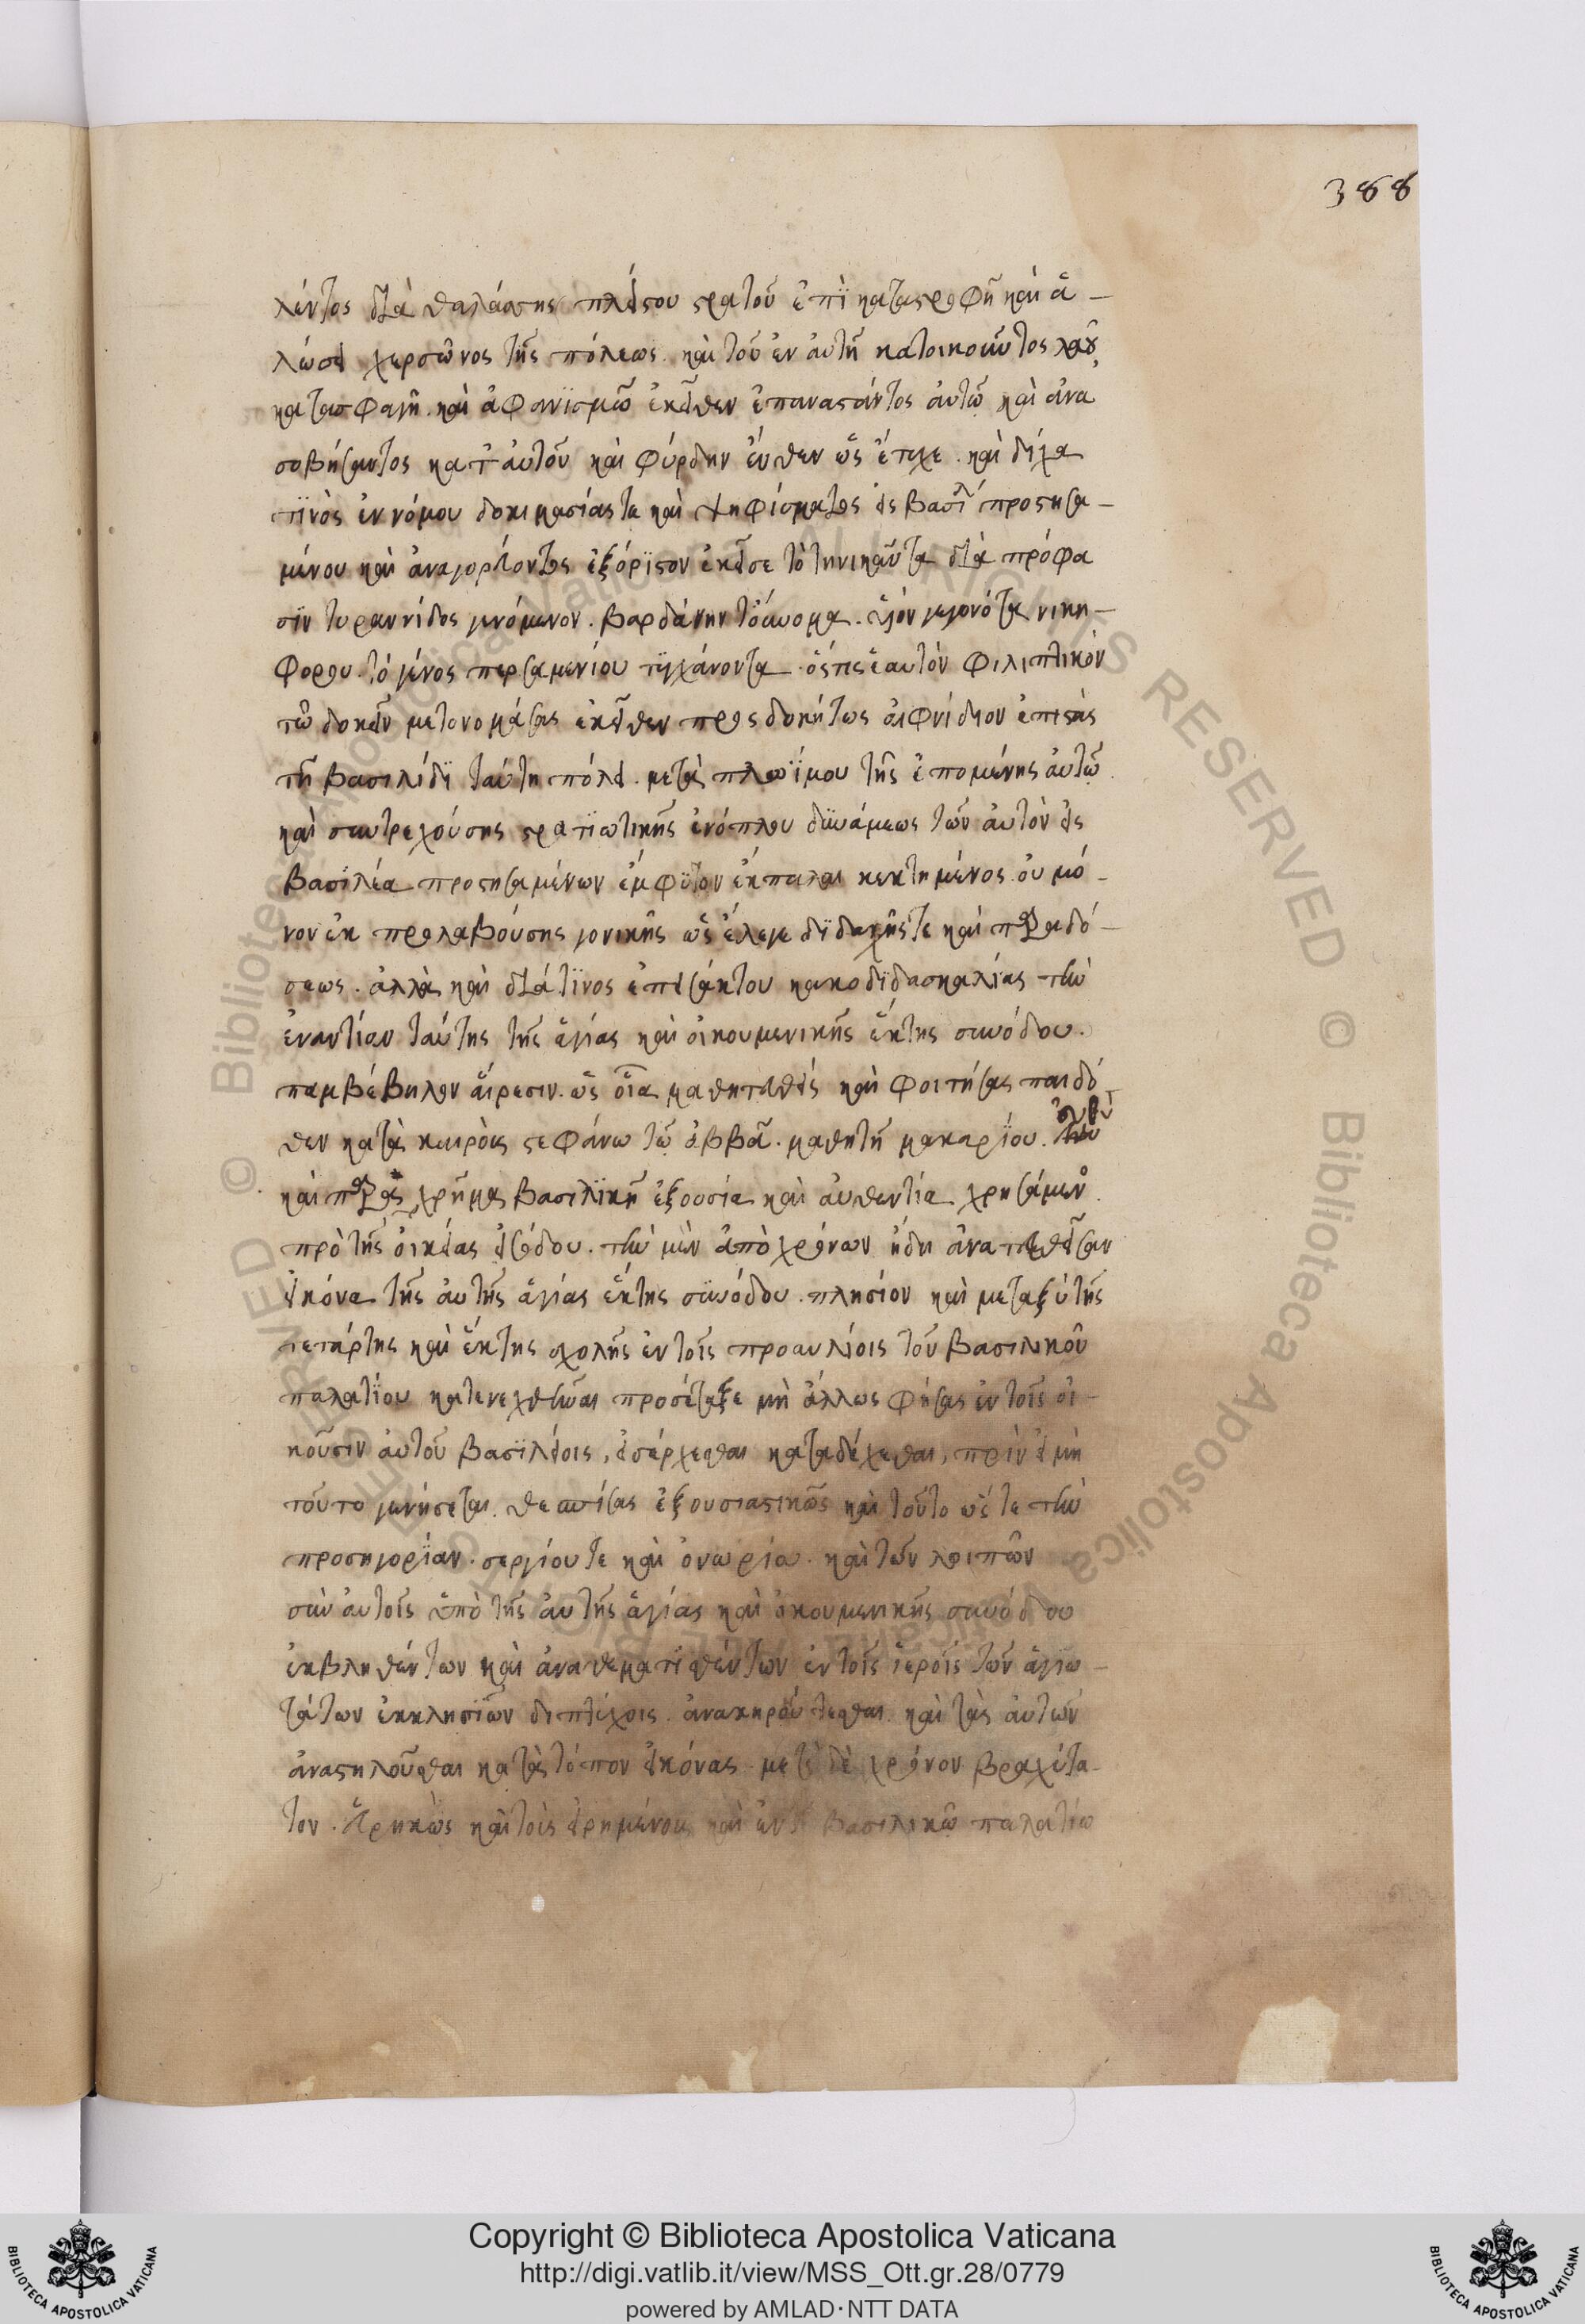 388
λέντος διὰ θαλάσσης πλείστου στρατοῦ ἐπῒ καταστροφῆ καὶ ἁ-
λώσει χερσῶνος τῆς πόλεως. καὶ τοῦ ἐν αὐτῆ κατοικοῦντος λαοῦ
κατασφαγῆ. καὶ ἀφανϊσμῶ ἐκεῖθεν ἐπαναστάντος αὐτῶ καὶ ἀνα
σοβήσαντος κατ' αὐτοῦ καὶ φύρδην ἔνθεν ὡς ἔτυχε. καὶ δίχα
τϊνὸς ἐννόμου δοκιμασίας τε καὶ ψηφίσματος εἰς βασιλέα προστησα-
μένου καὶ ἀναγορεύοντος ἐξόριστον ἐκεῖσε τὸ τηνικαῦτα διὰ πρόφα
σϊν τυραννίδος γενόμενον. βαρδάνην τὸ ὄνομα. υἱὸν γεγονότα νικη-
φόρου. τὸ γένος περσαμενίου τϋγχάνοντα. ὅστις ἑαυτὸν φιλιππικὸν
τῶ δοκεῖν μετονομάσας ἐκεῖθεν προσδοκήτως αἰφνίδιον ἐπιστὰς
τῆ βασιλίδϊ ταύτη πόλει. μετὰ πλωΐμου τῆς ἑπομένης αὐτῶ
καὶ συντρεχούσης στρατϊωτικῆς ἐνόπλου δϋνάμεως τῶν αὐτὸν εἰς
βασϊλέα προστησαμένων ἐμφϋτον ἔκπαλαι κεκτημένος. οὐ μό-
νον ἐκ προλαβούσης γονικῆς ὡς ἔλεγε δϊδαχῆς τε καὶ παραδό-
σεως. ἀλλὰ καὶ διά τϊνος ἐπεισάκτου κακοδϊδασκαλίας τὴν
ἐναντίαν ταύτης τῆς ἁγίας καὶ οἰκουμενικῆς ἕκτης συνόδου.
παμβέβηλον αἵρεσιν. ὡς οἷα μαθητευθεὶς καὶ φοιτήσας παιδό
θεν κατὰ καιροὺς στεφάνω τῶ ἀββᾶ. μαθητῆ μακαρΐου.
καὶ παρὰ χρῆμα βασιλϊκῆ ἐξουσία καὶ αὐθεντία χρησάμενος.
πρὸ τῆς οἰκείας εἰσόδου. τὴν μὲν ἀπὸ χρόνων ἤδη ἀνατεθεῖσαν
εἰκόνα τῆς αὐτῆς ἁγίας ἕκτης συνόδου. πλησίον καὶ μεταξὺ τῆς
τετάρτης καὶ ἕκτης σχολῆς ἐν τοῖς προαυλίοις τοῦ βασιλικοῦ
παλατΐου κατενεχθῆναι προσέταξε μὴ ἄλλως φήσας ἐν τοῖς οἰ-
κοῦσιν αὐτοῦ βασϊλείοις, εἰσέρχεσθαι καταδέχεσθαι, πρὶν εἰ μὴ
τοῦτο γενήσεται. θεσπίσας ἐξουσιαστικῶς καὶ τοῦτο ὥστε τὴν
προσηγορΐαν. σεργίου τε καὶ ὀνωρίου. καὶ τῶν λοιπῶν
σὺν αὐτοῖς ὑπὸ τῆς αὐτῆς ἁγίας καὶ οἰκουμενικῆς συνόδου
ἐκβληθέντων καὶ ἀναθεματϊσθέντων ἐν τοῖς ἱεροῖς τῶν ἁγιω-
τάτων ἐκκλησϊῶν διπτύχοις. ἀνακηρύττεσθαι. καὶ τὰς αὐτῶν
ἀναστηλοῦσθαι κατὰ τόπον εἰκόνας. μετὰ δὲ χρόνον βραχύτα-
τον. εὑρηκὼς καὶ τοῖς εἰρημένοις καὶ ἐν τῶ βασιλικῶ παλατίω
Copyright © Biblioteca Apostolica Vaticana
http://digi.vatlib.it/view/MSS_Ott.gr.28/0779
powered by AMLAD·NTT DATA